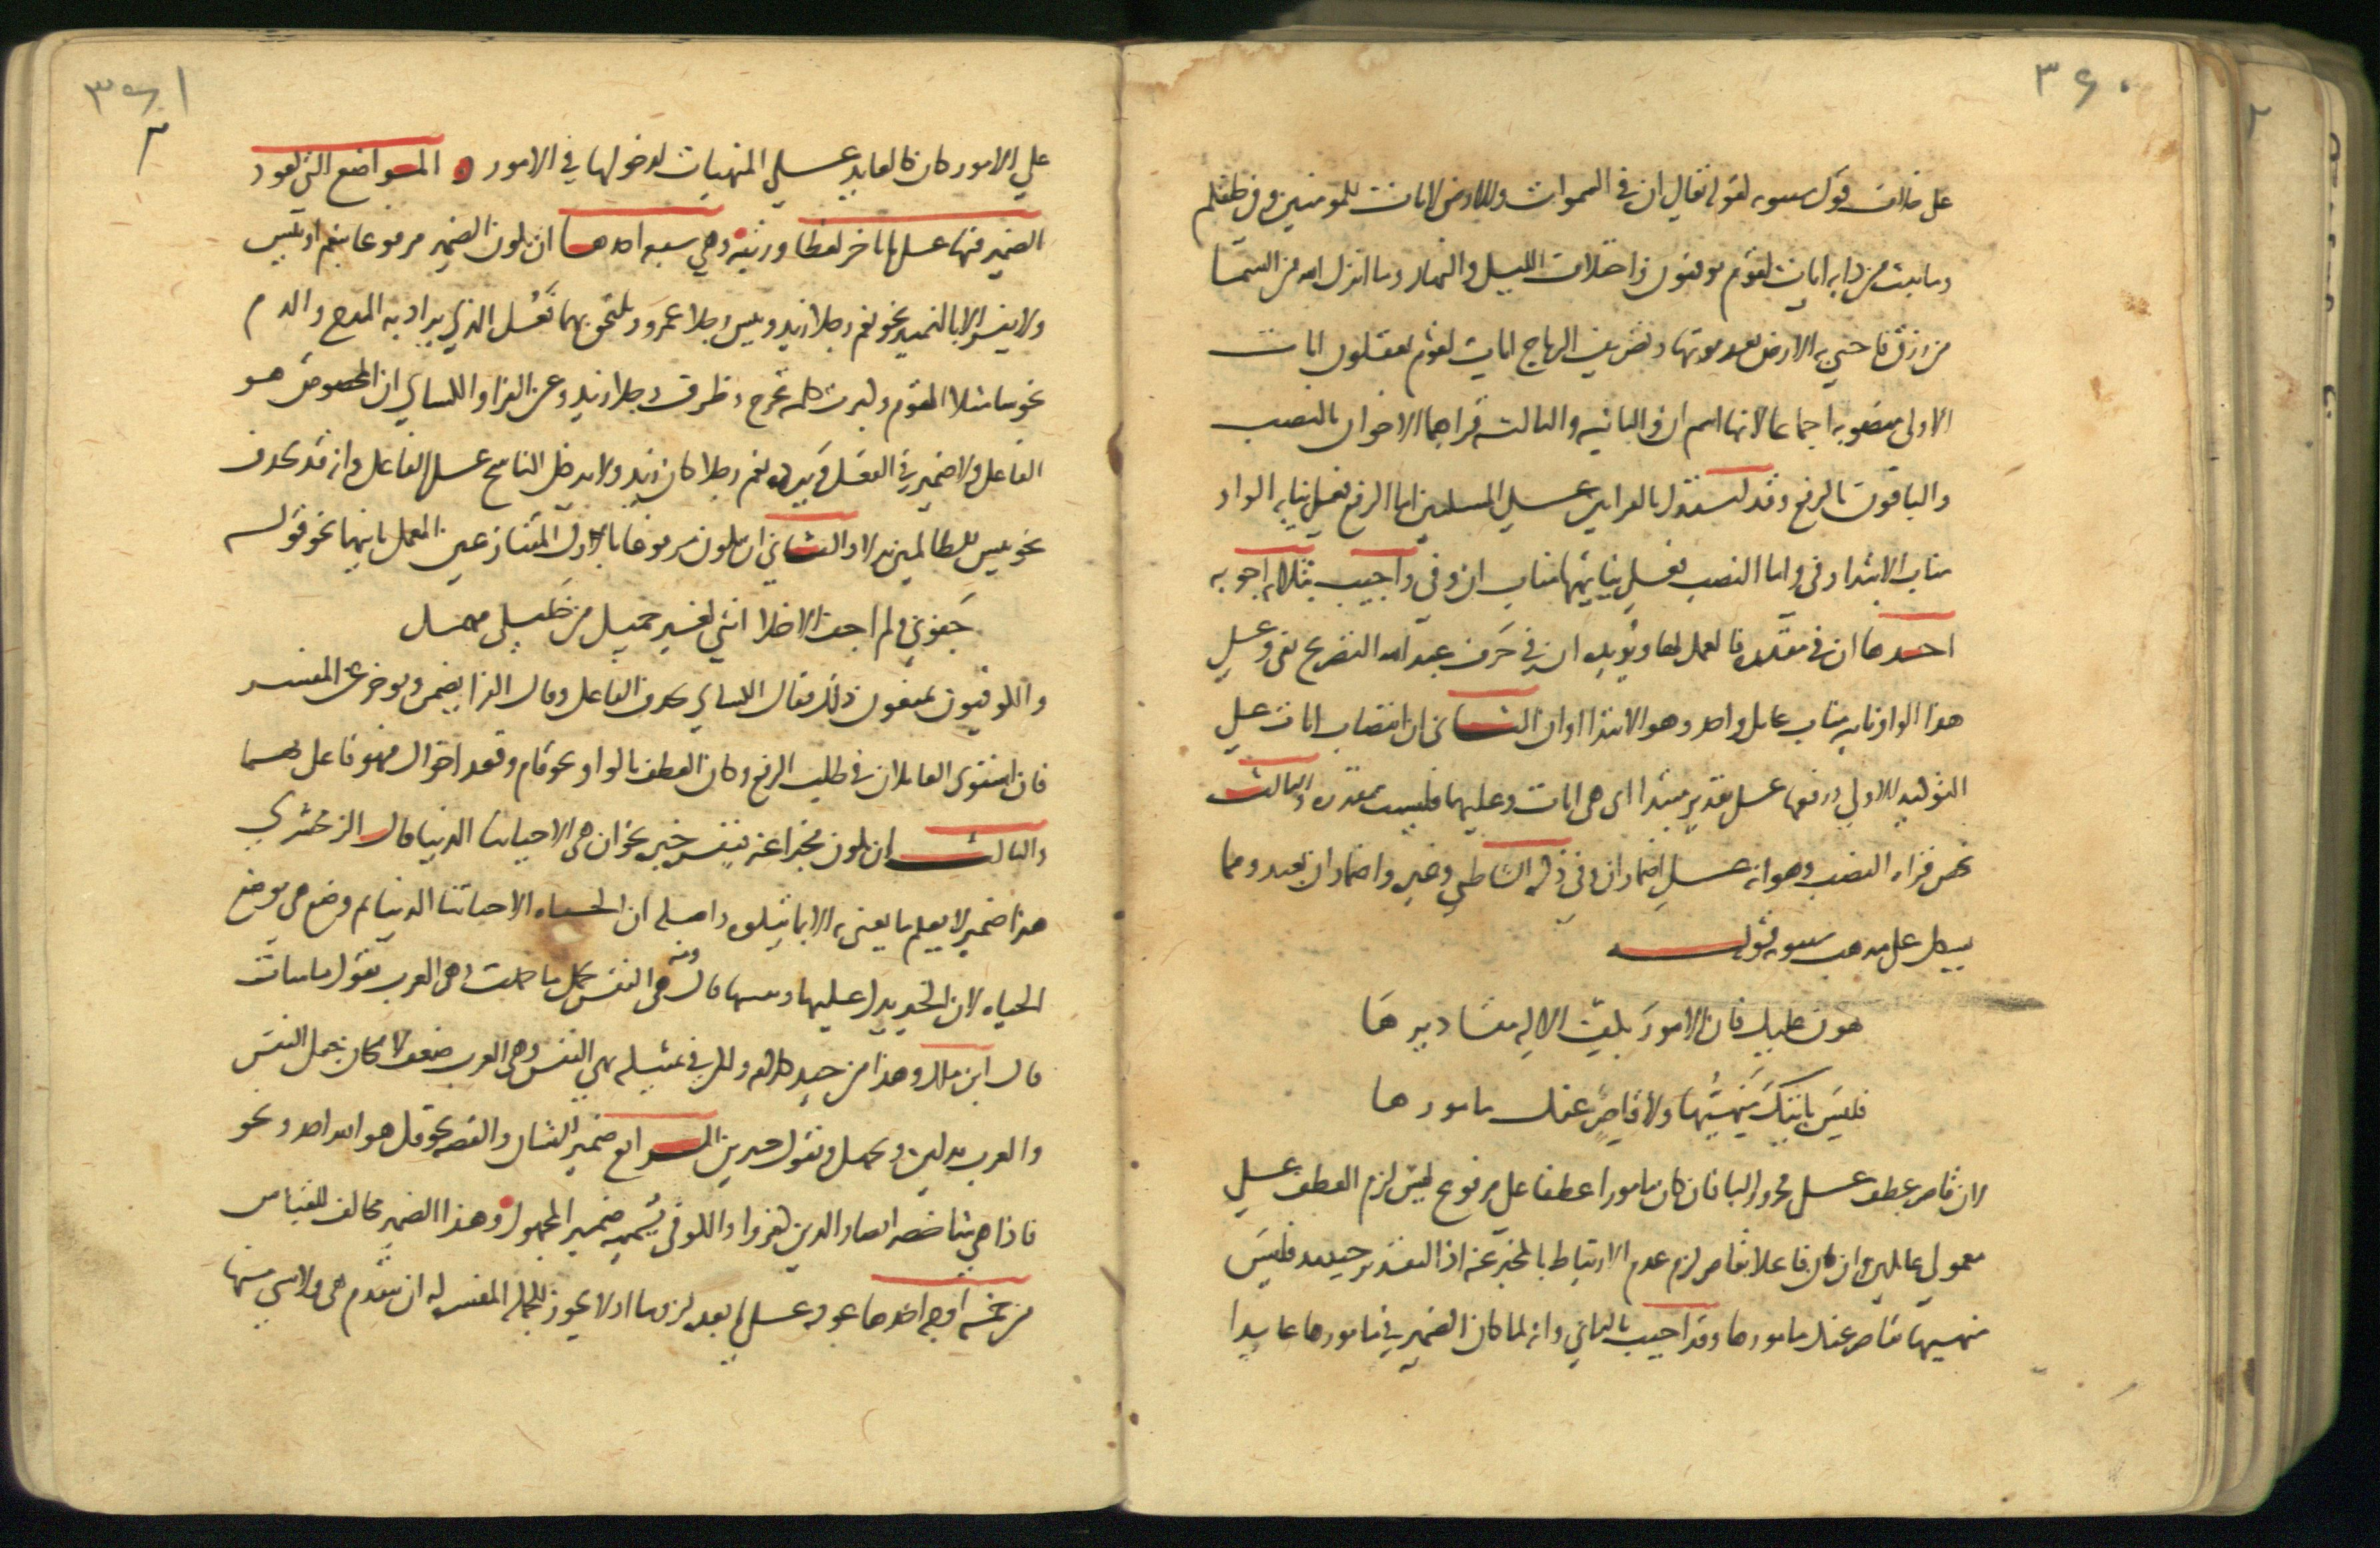 ٣٦٠
على خلاف قول سيبويه لقوله تعالى ان في السموات والارض لايات للمومنين وفي خلقكم
وما يبث من دابة ايات لقوم يوقنون واختلاف الليل والنهار وما انزل الله من السما
من رزق فاحيي به الارض بعد موتها وتصريف الرياح ايات لقوم يعقلون ايات
الاولى منصوبه اجماعا لانها اسم ان والثانيه والثالثه قراهما الاخوان بالنصب
والباقون بالرفع وقد استدل بالقراتين على المسلتين اما الرفع فعلى نيابه الواو
مناب الابتدا وفي واما النصب فعلى نيابتها مناب ان وفي واجيب بثلاثه اجوبه
احدها ان في مقدره فالعمل لها ويويده ان في حرف عبد الله التصريح بفي وعلى
هذا الواو نايبه مناب عامل واحد وهو الابتدا او ان الثاني ان انتصاب ايات على
التوكيد للاولى ورفعها على تقدير مبتدا اى هي ايات وعليهما فليست مقدره والثالث
يخص قراه النصب وهو انه على اضمار ان وفي ذكره الشاطبي وغيره واضمار ان بعيد ومما
يشكل على مذهب سيبويه قوله
هون عليك فان الامور بكف الاله مقاديرها
فليس باتيك منهيها ولا قاصر عنك مامورها
لان قاصر عطف على مجرور البا فان كان مامورها عطفا على مرفوع ليس لزم العطف على
معمولي عاملين وان كان فاعلا بقاصر لزم عدم الارتباط بالمخبر عنه اذ التقدير حينيذ فليس
منهيها بقاصر عنك مامورها وقد اجيب بالثاني وانه لما كان الضمير في مامورها عايدا
٣٦١
٣
على الامور كان كالعايد على المنهيات لدخولها في الامور المواضع التي يعود
الضمير فيها على متاخر لفظا ورتبه وهي سبعه احدها ان يكون الضمير مرفوعا بنعم او بيس
ولا يفسر الا بالتمييز نحو نعم رجلا زيد وبيس رجلا عمرو ويلتحق بهما فعل الذي يراد به المدح والذم
نحو ساء مثلا القوم وكبرت كلمه تخرج وظرف رجلا زيد وعن الفرا والكساي ان المخصوص هو
الفاعل ولا ضمير في الفعل ويرده نعم رجلا كان زيد ولا يدخل الناسخ على الفاعل وانه قد يحذف
نحو بيس للظالمين بدلا والثاني ان يكون مرفوعا باول المتنازعين المعمل ثانيهما نحو قوله
جفوني ولم اجف الاخلا انني لغير جميل من خليلي مهمل
والكوفيون يمنعون ذلك فقال الكساي يحذف الفاعل وقال الفرا يضمر ويوخر عن المفسر
فان استوى العاملان في طلب الرفع وكان العطف بالواو نحو قام وقعد اخواك فهو فاعل بهما
والثالث ان يكون مخبرا عنه فيفسره خبره نحو ان هي الا حياتنا الدنيا قال الزمخشري
هذا ضمير لا يعلم ما يعنى به الا بما يتلوه واصله ان الحياه الا حياتنا الدنيا ثم وضع هي موضع
الحياه لان الخبر يدل عليها ويبينها قال ومنه هي النفس تحمل ما حملت وهي العرب تقول ما شات
قال ابن مالك وهذا من جيد كلامه ولكن في تمثيله بهي النفس وهي العرب ضعف لامكان جعل النفس
والعرب بدلين وتحمل وتقول خبرين الرابع ضمير الشان والقصه نحو قل هو الله احد ونحو
فاذا هي شاخصه ابصار الذين كفروا والكوفي يسميه ضمير المجهول وهذا الضمير مخالف للقياس
من خمسه اوجه احدها عوده على ما بعده لزوما اذ لا يجوز للجمله المفسره له ان تتقدم هي ولا شي منها